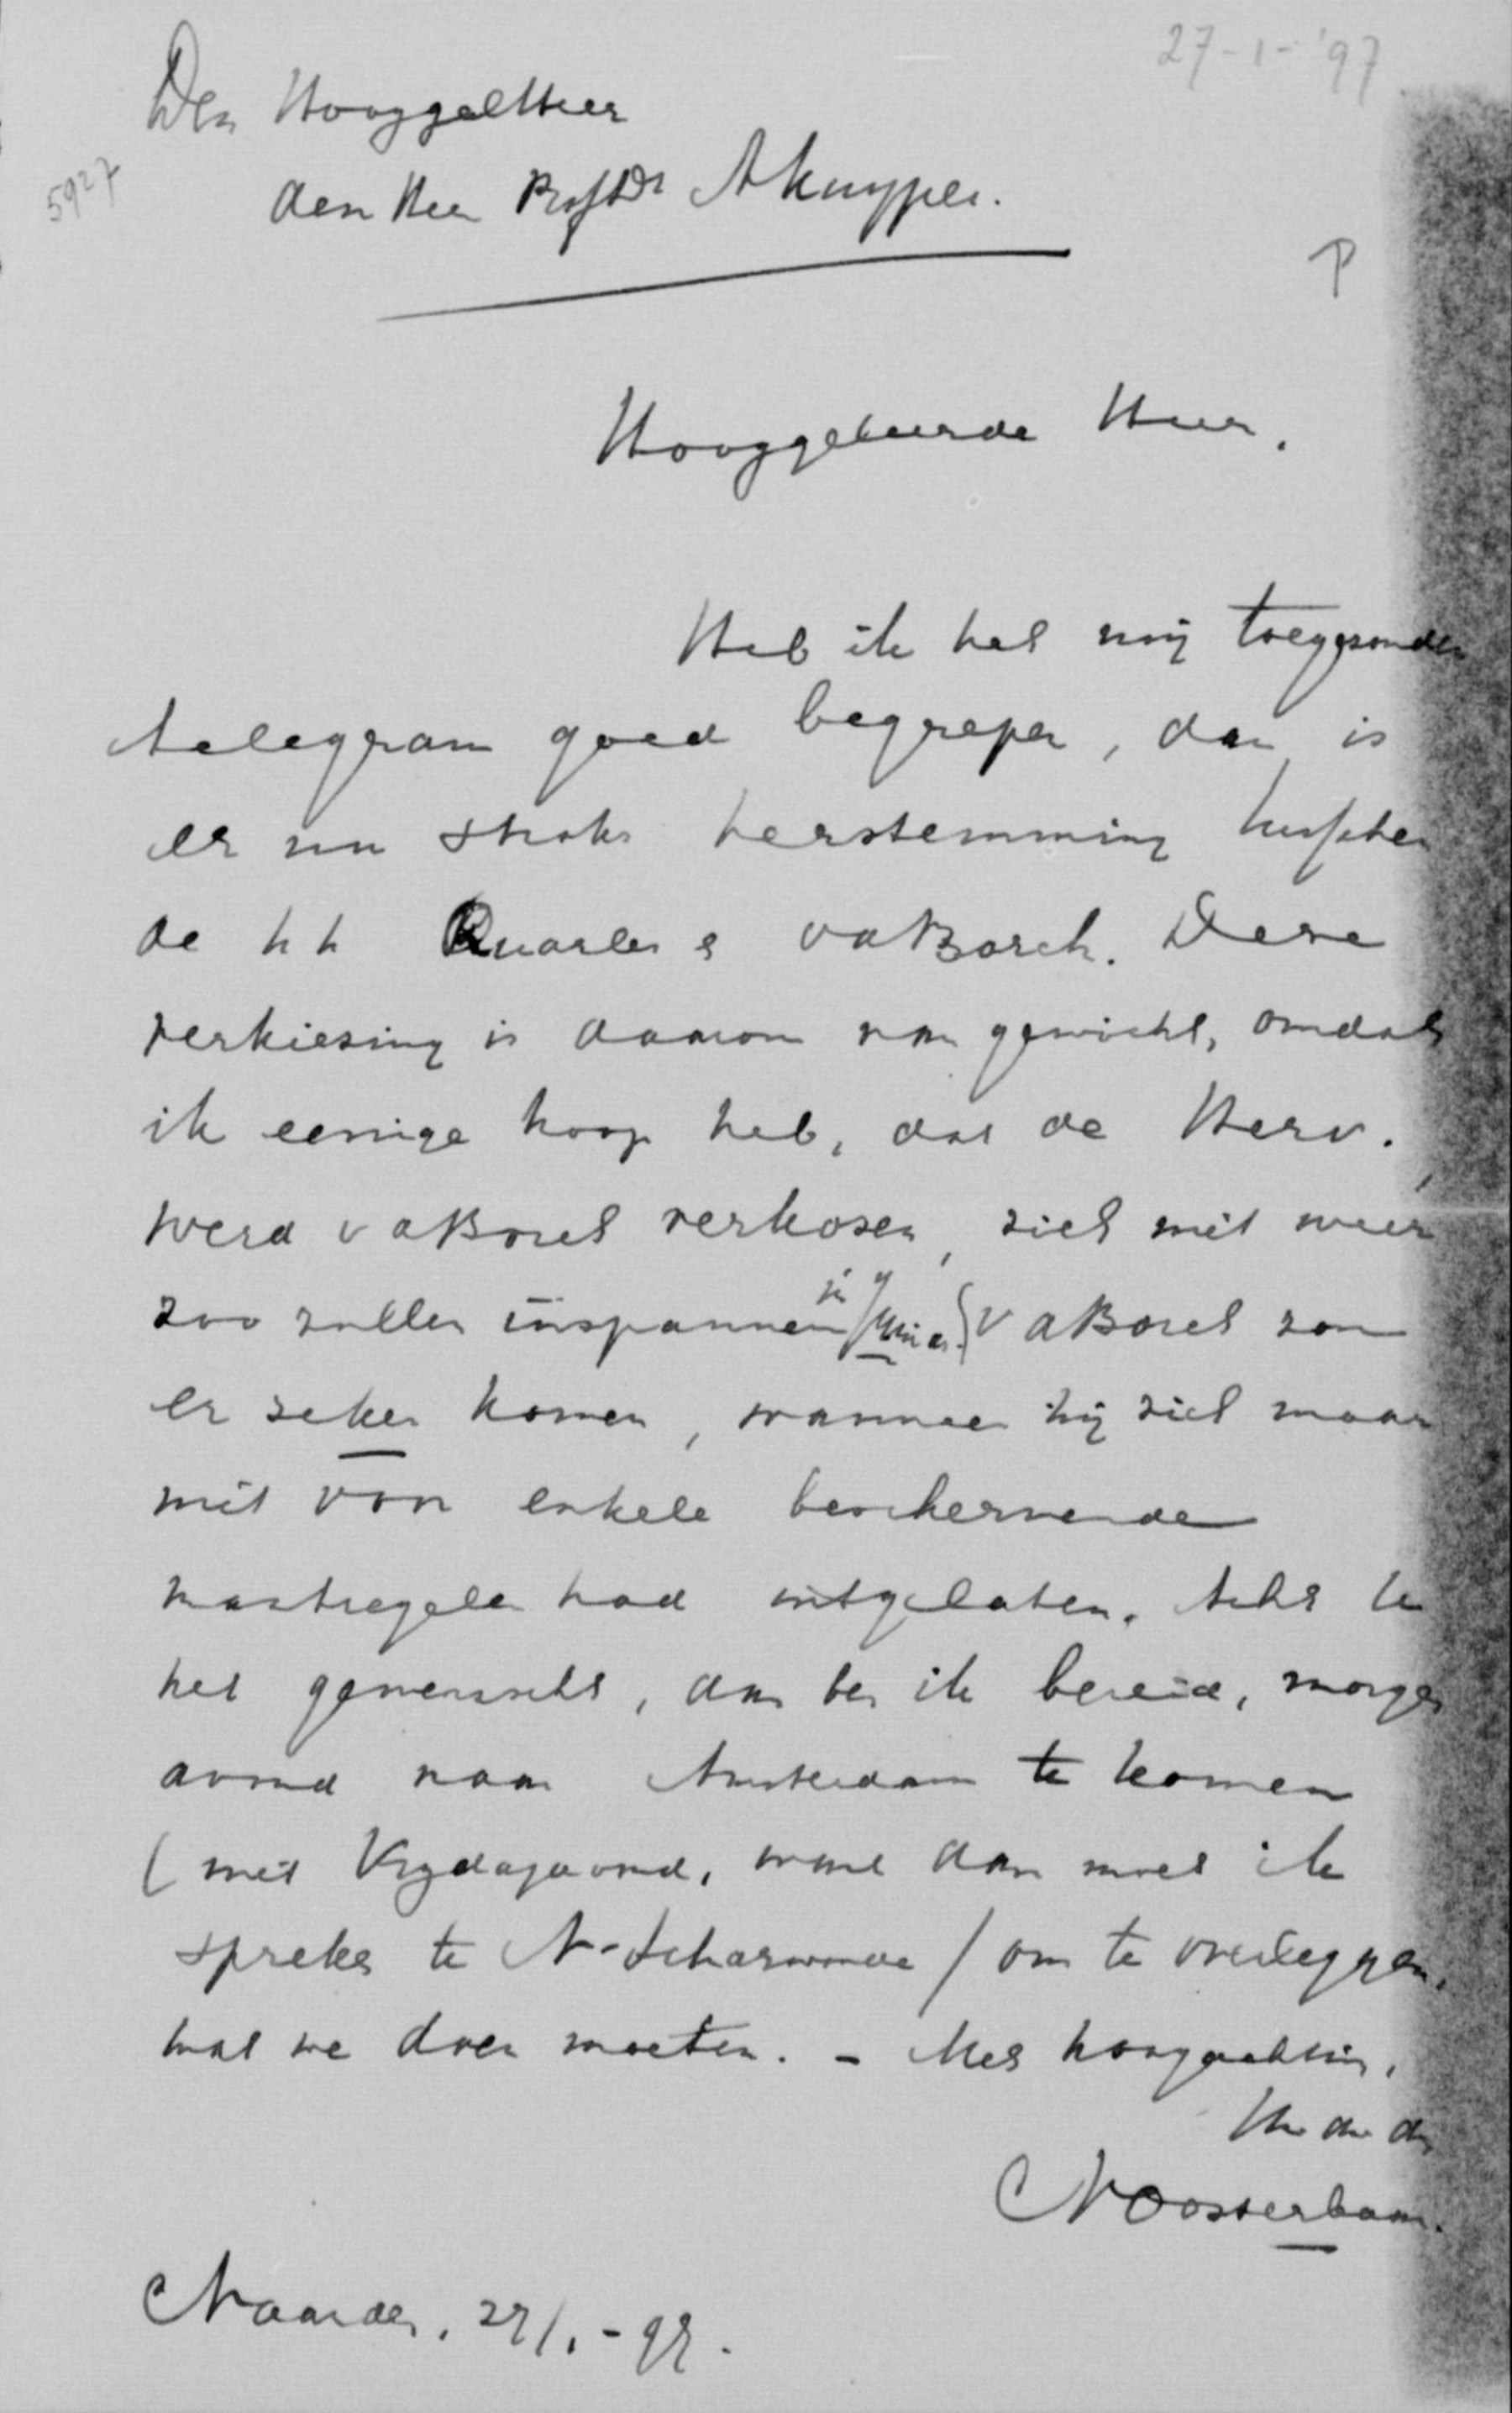 27-1-'97
Den HooggelHeer
5927
den Heer Prof Dr A Kuyper.
P
Hooggeleerde Heer,
Heb ik het mij toegezonden
telegram goed begrepen, dan is
er nu straks herstemming tusschen
de h h Quarles & vaBorch. Deze
verkiezing is daarom van gewicht, omdat
ik eenige hoop heb, dat de Herv.
werd v aBorch verkozen, zich niet weer
zoo zullen inspannen in Juni as. v aBorch zou
er zeker komen, wanneer hij zich maar
niet voor enkele beschermende
maatregelen had uitgelaten. Acht U
het gewenscht, dan ben ik bereid, morgen
avond naar Amsterdam te komen
(niet Vrijdagavond, want dan moet ik
spreken te N-Scharwoude) om te overleggen,
wat we doen moeten. - Met hoogachting,
Uw dw dr
N Oosterbaan.
Naarden, 27/1-97.